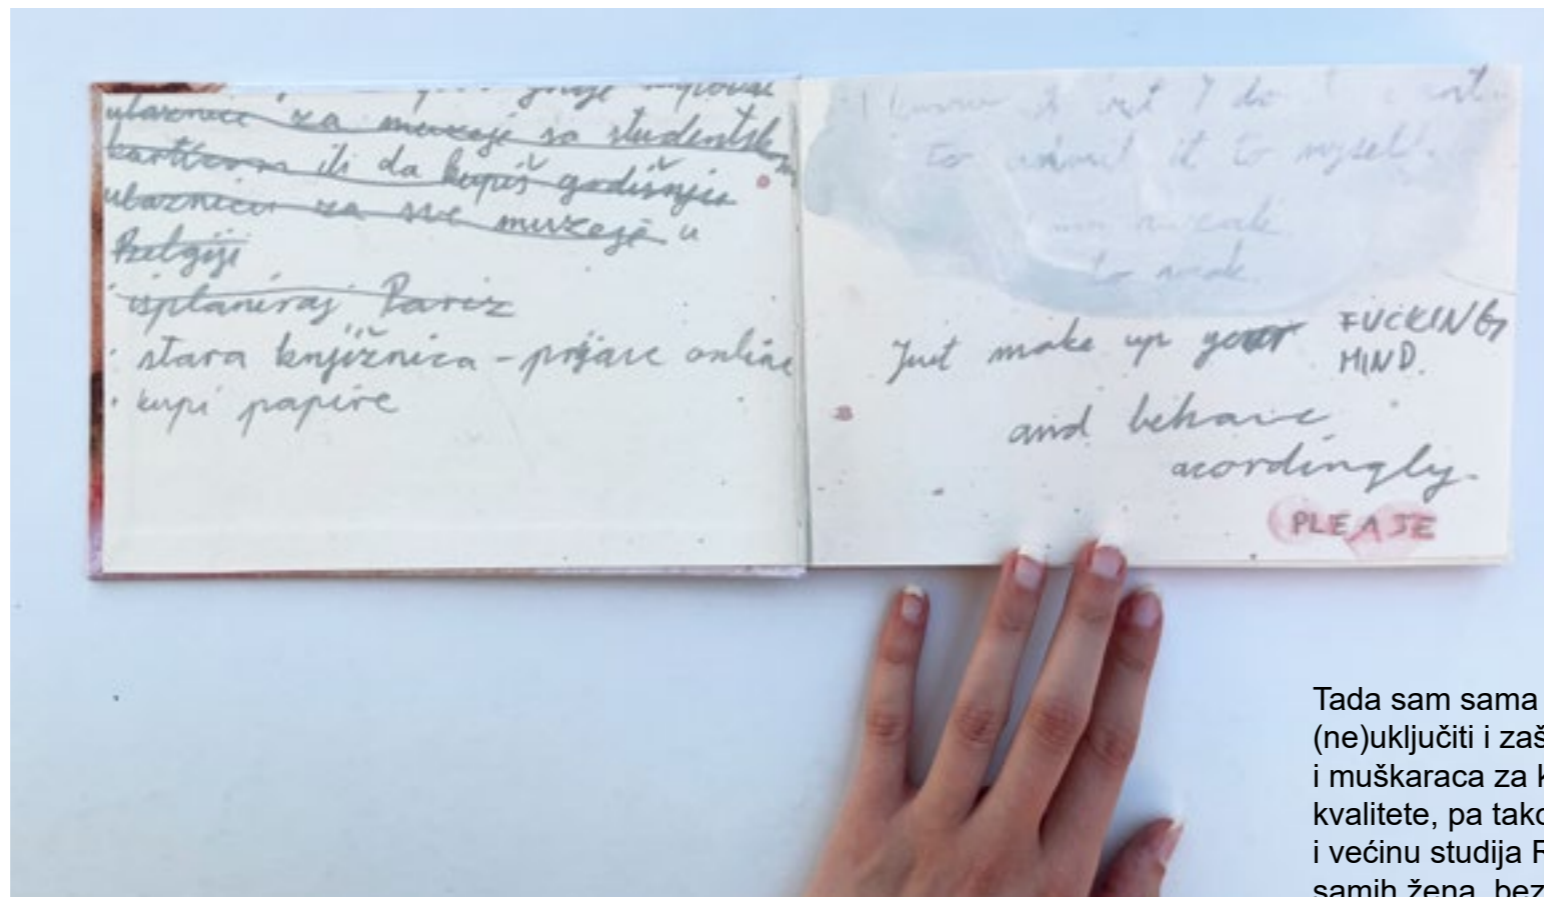 ulaznice za muzeje sa studentskom
karticom ili da kupiš godišnju
ulaznicu za sve muzeje u
Belgiji
isplaniraj Pariz
· stara knjižnica - prijave online
· kupi papire
I do
to admit it to myself.
to
Just make up your FUCKING
MIND.
and behave
acordingly.
PLEASE
Tada sam sama
(ne)uključiti i
i muškaraca za
kvalitete, pa
i većinu studija
samih žena, bez